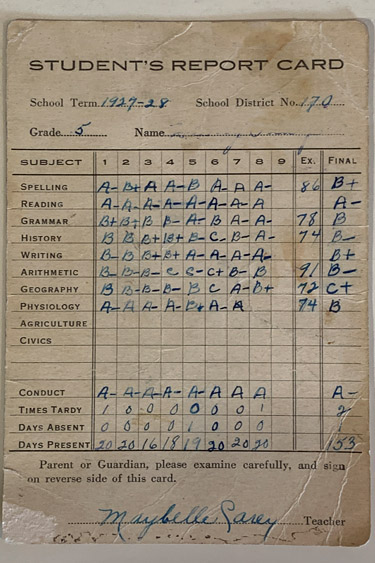 STUDENT'S REPORT CARD
School Term 1927-28 School District No. 170
Grade 5 Name
SUBJECT 1 2 3 4 5 6 7 8 9 Ex. FINAL
SPELLING A- B+ A A- B A- A A- 86 B+
READING A- A- A- A- A- A- A A A-
GRAMMAR B+ B+ B B- A- B A- A- 78 B
HISTORY B B B+ B+ B- C- B- A- 74 B-
WRITING B- B B+ B+ A- A- A- A- B+
ARITHMETIC B- B- B- C C- C+ B- B 91 B-
GEOGRAPHY B B- B- B- B C A- B+ 72 C+
PHYSIOLOGY A- A- A- A- B+ A- A 74 B
AGRICULTURE
CIVICS
CONDUCT A- A- A- A- A- A A A A-
TIMES TARDY 1 0 0 0 0 0 0 1 2
DAYS ABSENT 0 0 0 0 1 0 0 0 1
DAYS PRESENT 20 20 16 18 19 20 20 20 153
Parent or Guardian, please examine carefully, and sign
on reverse side of this card.
Maybelle Teacher